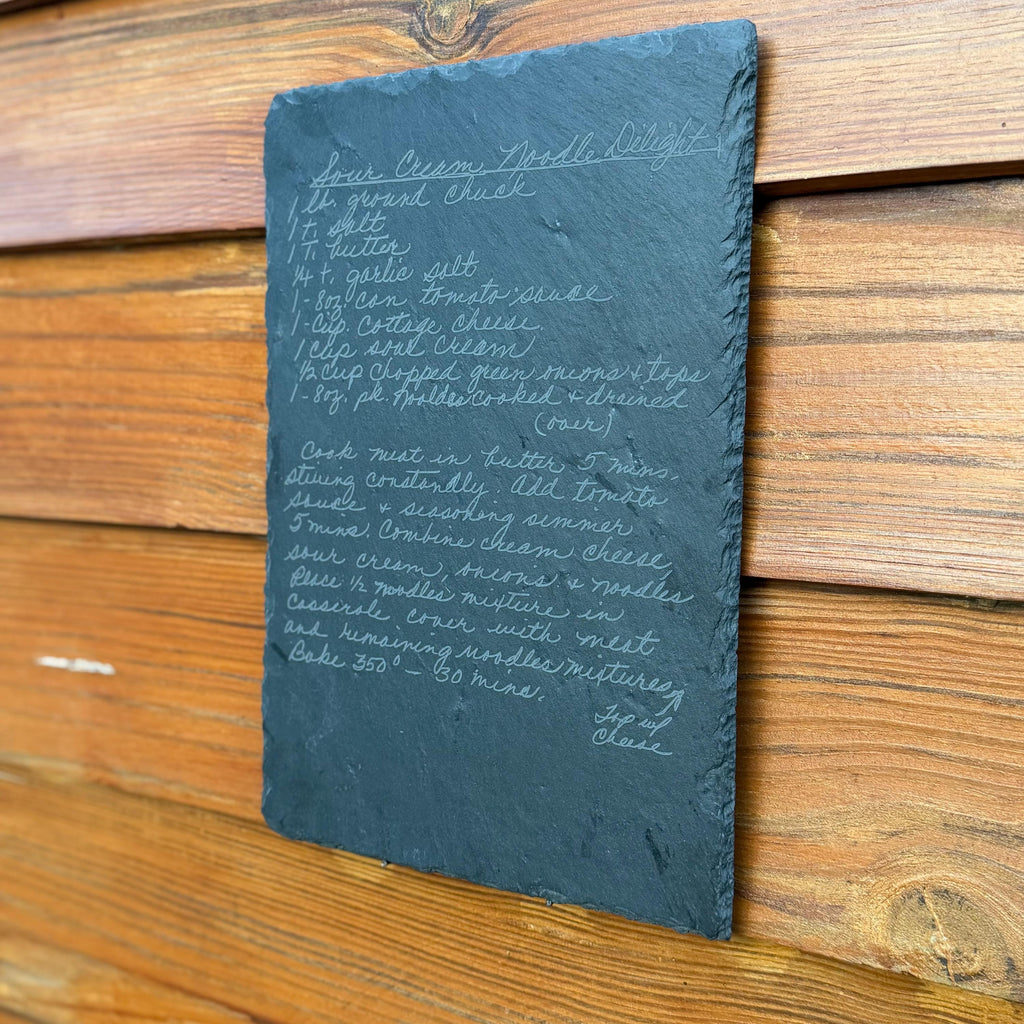 Sour Cream Noodle Dilight
1 lb. ground chuck
1 t. salt
1 T. butter
¼ t. garlic salt
1 - 8oz. can tomato sauce
1 - Cup. Cottage Cheese.
1 cup sour cream
½ cup Chopped green onions + tops
1 - 8oz. pk. Nooldes cooked + drained
(over)
Cook meat in butter 5 mins,
stiring constandly. Add tomato
sauce + seasoning simmer
5 mins. Combine cream cheese,
sour cream, onions + noodles
Place ½ noodles mixture in
Casserole cover with meat
and remaining noodles mistures
Bake 350° - 30 mins.
Top w/
Cheese